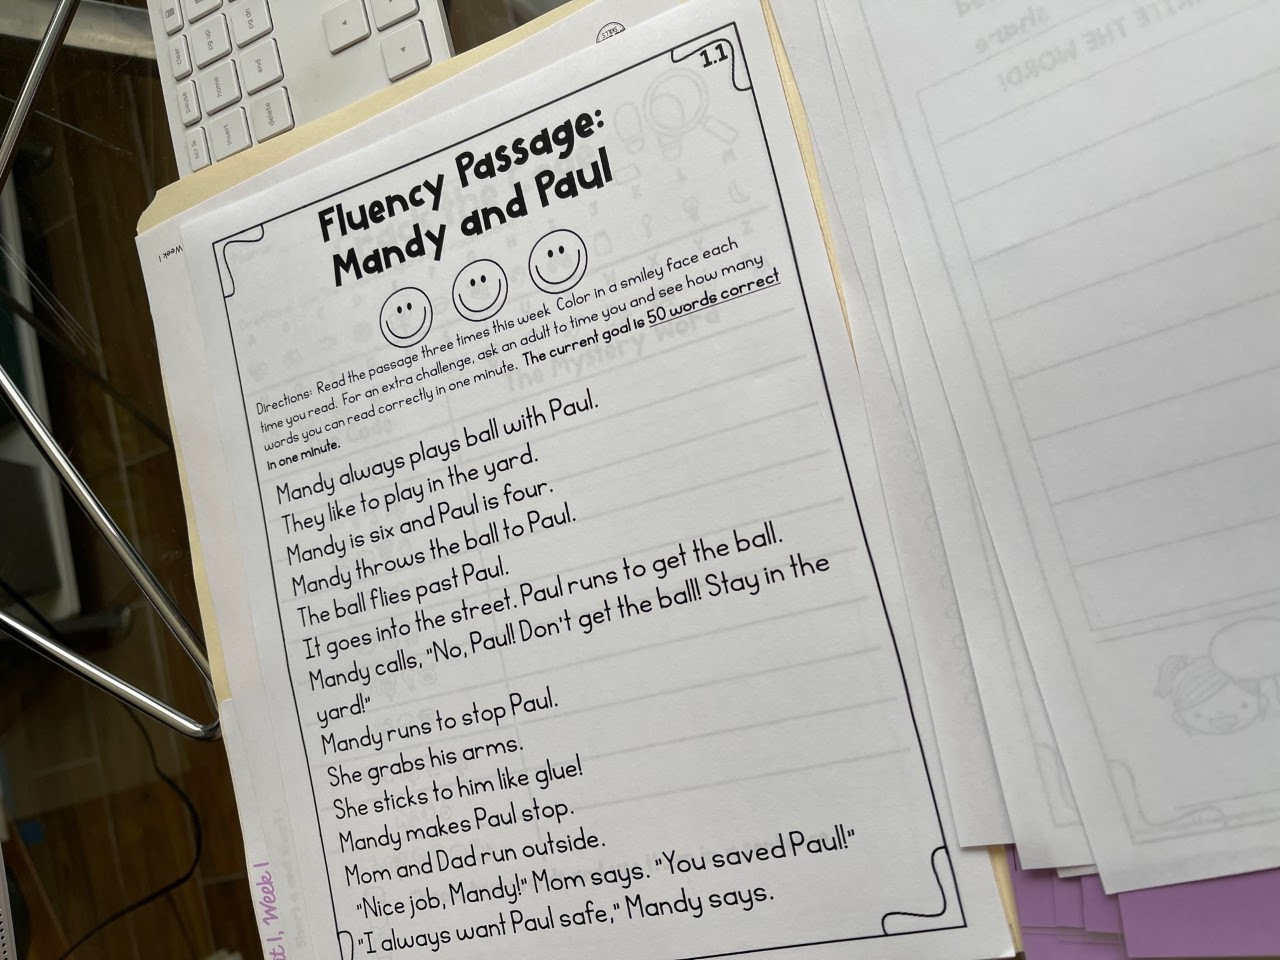 1.1
Fluency Passage:
Mandy and Paul
Directions: Read the passage three times this week. Color in a smiley face each
time you read. For an extra challenge, ask an adult to time you and see how many
words you can read correctly in one minute. The current goal is 50 words correct
in one minute.
Mandy always plays ball with Paul.
They like to play in the yard.
Mandy is six and Paul is four.
Mandy throws the ball to Paul.
The ball flies past Paul.
It goes into the street. Paul runs to get the ball.
Mandy calls, "No, Paul! Don't get the ball! Stay in the
yard!"
Mandy runs to stop Paul.
She grabs his arms.
She sticks to him like glue!
Mandy makes Paul stop.
Mom and Dad run outside.
"Nice job, Mandy!" Mom says. "You saved Paul!"
"I always want Paul safe," Mandy says.
Week 1
it 1, Week 1
clear
pg up
pg dn
pause
home
end
insert
delete
THE WORD!
share
The Mystery Word